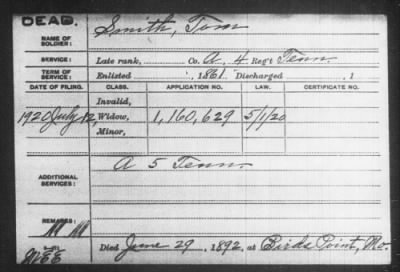 DEAD.
NAME OF SOLDIER: Smith, Tom
SERVICE: Late rank, Co. A, 4 Reg't Tenn.
TERM OF SERVICE: Enlisted , 1861 Discharged , 1
DATE OF FILING. CLASS. APPLICATION NO. LAW. CERTIFICATE NO.
Invalid,
1920 July 12, Widow, 1,160,629 5/1/20
Minor,
ADDITIONAL SERVICES: A 5 Tenn.
REMARKS:
Died June 29, 1892, at Birds Point, Mo.